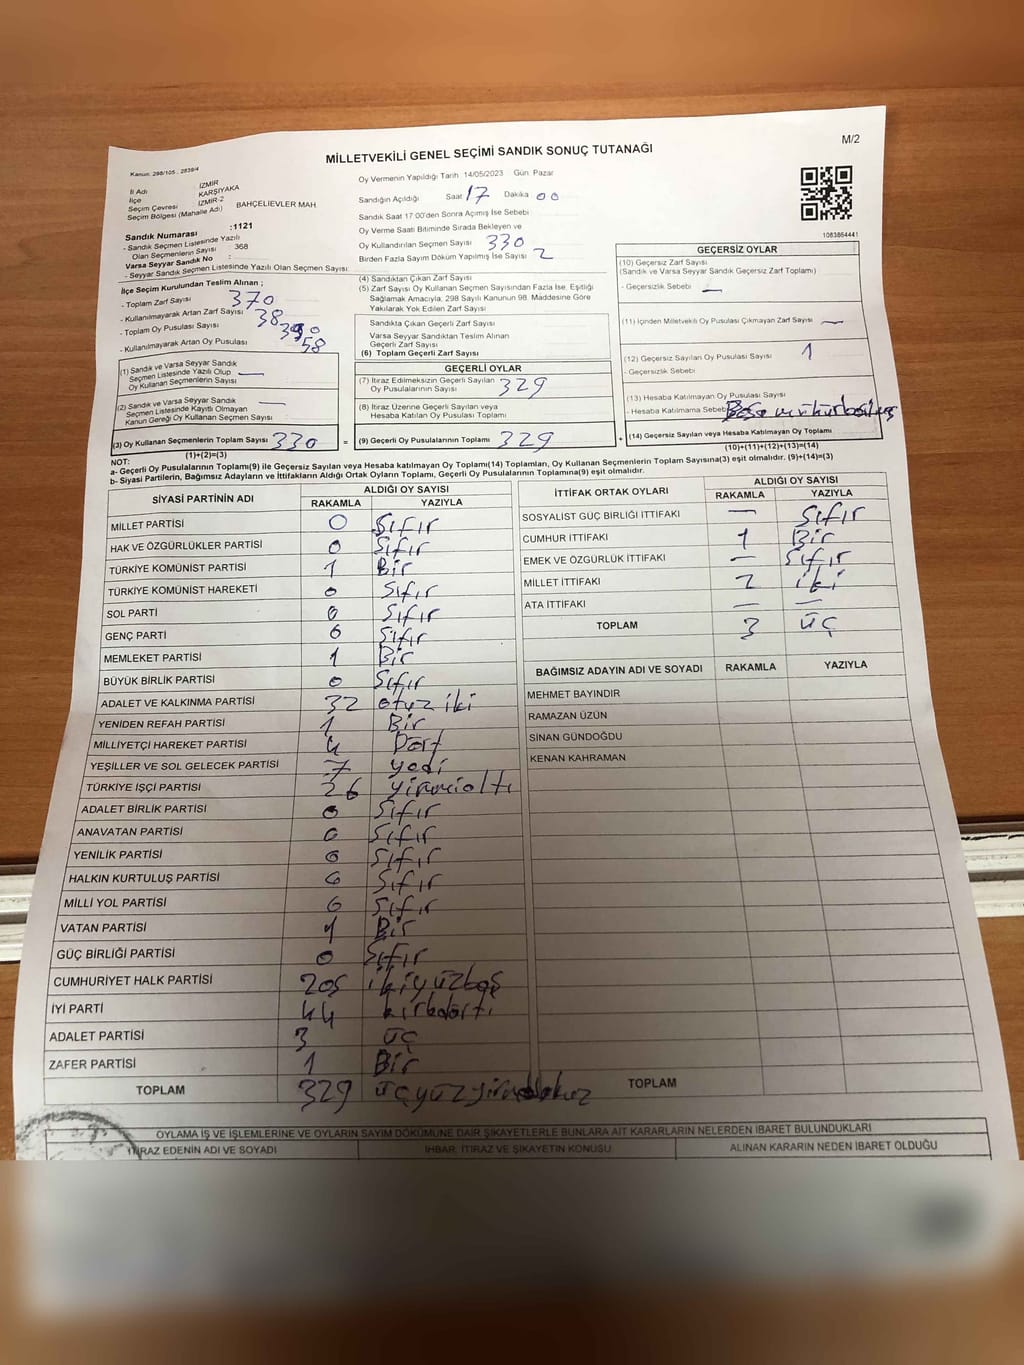 M/2
MİLLETVEKİLİ GENEL SEÇİMİ SANDIK SONUÇ TUTANAĞI
Kanun: 298/105 , 2839/4
İl Adı İZMİR
İlçe KARŞIYAKA
Seçim Çevresi İZMİR-2
Seçim Bölgesi (Mahalle Adı) BAHÇELİEVLER MAH.
Sandık Numarası :1121
- Sandık Seçmen Listesinde Yazılı
Olan Seçmenlerin Sayısı : 368
Varsa Seyyar Sandık No :
- Seyyar Sandık Seçmen Listesinde Yazılı Olan Seçmen Sayısı
Oy Vermenin Yapıldığı Tarih 14/05/2023 Gün Pazar
Sandığın Açıldığı Saat 17 Dakika 00
Sandık Saat 17:00'den Sonra Açımış İse Sebebi
Oy Verme Saati Bitiminde Sırada Bekleyen ve
Oy Kullandırılan Seçmen Sayısı 330
Birden Fazla Sayım Döküm Yapılmış İse Sayısı 2
1083864441
İlçe Seçim Kurulundan Teslim Alınan ;
- Toplam Zarf Sayısı 370
- Kullanılmayarak Artan Zarf Sayısı 38
- Toplam Oy Pusulası Sayısı
- Kullanılmayarak Artan Oy Pusulası 58
(1) Sandık ve Varsa Seyyar Sandık
Seçmen Listesinde Yazılı Olup —
Oy Kullanan Seçmenlerin Sayısı
(2) Sandık ve Varsa Seyyar Sandık —
Seçmen Listesinde Kayıtlı Olmayan
Kanun Gereği Oy Kullanan Seçmen Sayısı
(3) Oy Kullanan Seçmenlerin Toplam Sayısı 330
(1)+(2)=(3)
(4) Sandıktan Çıkan Zarf Sayısı
(5) Zarf Sayısı Oy Kullanan Seçmen Sayısından Fazla İse, Eşitliği
Sağlamak Amacıyla, 298 Sayılı Kanunun 98. Maddesine Göre
Yakılarak Yok Edilen Zarf Sayısı
Sandıkta Çıkan Geçerli Zarf Sayısı
Varsa Seyyar Sandıktan Teslim Alınan
Geçerli Zarf Sayısı
(6) Toplam Geçerli Zarf Sayısı
GEÇERLİ OYLAR
(7) İtiraz Edilmeksizin Geçerli Sayılan
Oy Pusulalarının Sayısı 329
(8) İtiraz Üzerine Geçerli Sayılan veya
Hesaba Katılan Oy Pusulası Toplamı
= (9) Geçerli Oy Pusulalarının Toplamı 329
GEÇERSİZ OYLAR
(10) Geçersiz Zarf Sayısı
(Sandık ve Varsa Seyyar Sandık Geçersiz Zarf Toplamı)
- Geçersizlik Sebebi —
(11) İçinden Milletvekili Oy Pusulası Çıkmayan Zarf Sayısı —
(12) Geçersiz Sayılan Oy Pusulası Sayısı 1
- Geçersizlik Sebebi
(13) Hesaba Katılmayan Oy Pusulası Sayısı
- Hesaba Katılmama Sebebi
+ (14) Geçersiz Sayılan veya Hesaba Katılmayan Oy Toplamı
(10)+(11)+(12)+(13)=(14)
NOT:
a- Geçerli Oy Pusulasının Toplamı(9) ile Geçersiz Sayılan veya Hesaba katılmayan Oy Toplamı(14) Toplamları, Oy Kullanan Seçmenlerin Toplam Sayısına(3) eşit olmalıdır. (9)+(14)=(3)
b- Siyasi Partilerin, Bağımsız Adayların ve İttifakların Aldığı Ortak Oyların Toplamı, Geçerli Oy Pusulalarının Toplamına(9) eşit olmalıdır.
SİYASİ PARTİNİN ADI ALDIĞI OY SAYISI
RAKAMLA YAZIYLA
MİLLET PARTİSİ 0 Sıfır
HAK VE ÖZGÜRLÜKLER PARTİSİ 0 Sıfır
TÜRKİYE KOMÜNİST PARTİSİ 1 Bir
TÜRKİYE KOMÜNİST HAREKETİ 0 Sıfır
SOL PARTİ 0 Sıfır
GENÇ PARTİ 0 Sıfır
MEMLEKET PARTİSİ 1 Bir
BÜYÜK BİRLİK PARTİSİ 0 Sıfır
ADALET VE KALKINMA PARTİSİ 32 otuz iki
YENİDEN REFAH PARTİSİ 1 Bir
MİLLİYETÇİ HAREKET PARTİSİ 4 Dört
YEŞİLLER VE SOL GELECEK PARTİSİ 7 yedi
TÜRKİYE İŞÇİ PARTİSİ 26 yirmialtı
ADALET BİRLİK PARTİSİ 0 Sıfır
ANAVATAN PARTİSİ 0 Sıfır
YENİLİK PARTİSİ 0 Sıfır
HALKIN KURTULUŞ PARTİSİ 0 Sıfır
MİLLİ YOL PARTİSİ 0 Sıfır
VATAN PARTİSİ 1 Bir
GÜÇ BİRLİĞİ PARTİSİ 0 Sıfır
CUMHURİYET HALK PARTİSİ 205 ikiyüzbeş
İYİ PARTİ 44 kırkdört
ADALET PARTİSİ 3 üç
ZAFER PARTİSİ 1 Bir
TOPLAM 329 üçyüzyirmidokuz
İTTİFAK ORTAK OYLARI ALDIĞI OY SAYISI
RAKAMLA YAZIYLA
SOSYALİST GÜÇ BİRLİĞİ İTTİFAKI — Sıfır
CUMHUR İTTİFAKI 1 Bir
EMEK VE ÖZGÜRLÜK İTTİFAKI — Sıfır
MİLLET İTTİFAKI 2 iki
ATA İTTİFAKI — —
TOPLAM 3 üç
BAĞIMSIZ ADAYIN ADI VE SOYADI RAKAMLA YAZIYLA
MEHMET BAYINDIR
RAMAZAN ÜZÜN
SİNAN GÜNDOĞDU
KENAN KAHRAMAN
TOPLAM
OYLAMA İŞ VE İŞLEMLERİNE VE OYLARIN SAYIM DÖKÜMÜNE DAİR ŞİKAYETLERLE BUNLARA AİT KARARLARIN NELERDEN İBARET BULUNDUKLARI
İTİRAZ EDENİN ADI VE SOYADI İHBAR, İTİRAZ VE ŞİKAYETİN KONUSU ALINAN KARARIN NEDEN İBARET OLDUĞU